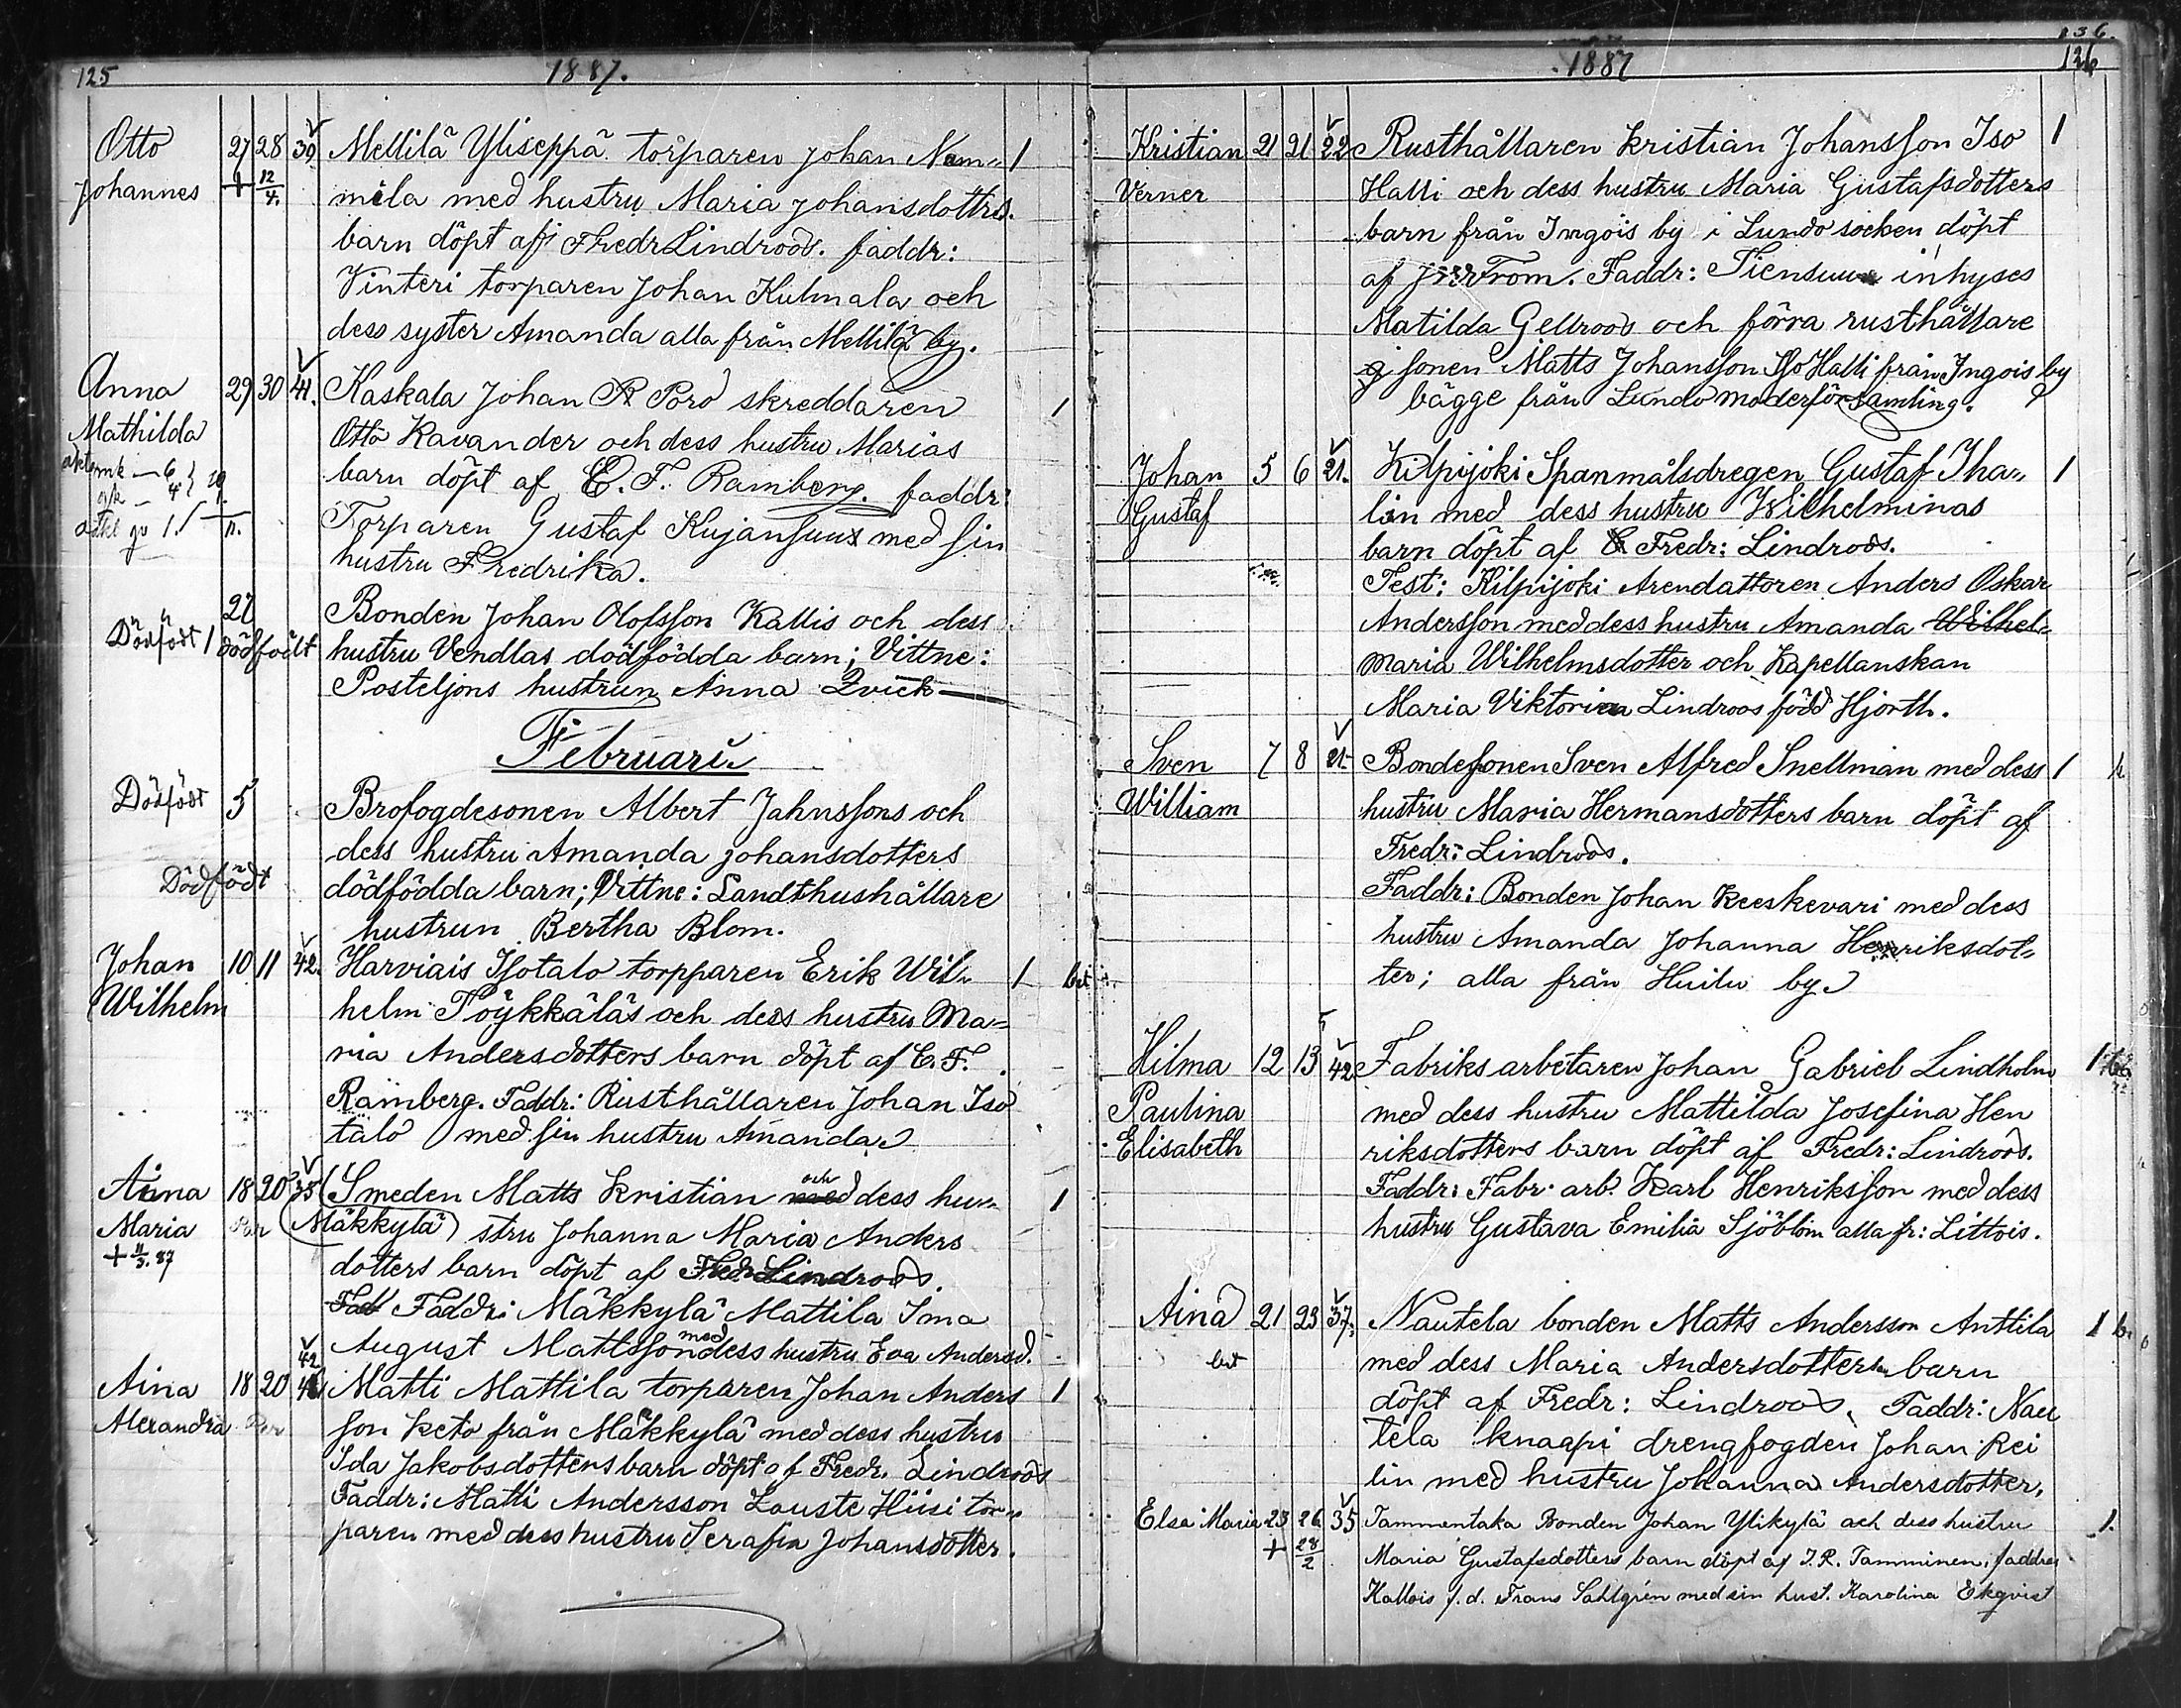 125
1887.
Otto 27 28 39 Mellilä Yliseppä torparen Johan Num= 1
Johannes + 12/4. mila med hustru Maria Johansdottrs.
barn döpt af Fredr Lindroos. faddr:
Vinteri torparen Johan Kulmala och
dess syster Amanda alla från Mellilä by.
Anna 29 30 41. Kaskala Johan R Poro skreddaren 1
Mathilda Otto Kavander och dess hustru Marias
barn döpt af C. F. Ramberg. faddr:
Torparen Gustaf Kujansuu med sin
hustru Fredrika.
27 Bonden Johan Olofsson Kallis och dess
Dödfödt 1 dödfödt hustru Vendlas dödfödda barn; Vittne:
Posteljons hustrun Anna Qvick
Februari
Dödfödt 5 Brofogdesonen Albert Jahnssons och
dess hustru Amanda Johansdotters
Dödfödt dödfödda barn; Vittne: Landthushållare
hustrun Bertha Blom.
Johan 10 11 42. Harviais Isotalo torpparen Erik Wil= 1 bit
Wilhelm helm Töykkäläs och dess hustru Ma=
ria Andersdotters barn döpt af C. F.
Ramberg. Faddr: Rusthållaren Johan Iso
talo med sin hustru Amanda
Aina 18 20 35 Smeden Matts Kristian med och dess hu= 1
Maria Par Mäkkylä stru Johanna Maria Anders
+ 11/3. 87 dotters barn döpt af Fredr Lindroos.
Fad Faddr: Mäkkylä Mattila Sma
August Mattsson med dess hustru Eva Andersd.
42
Aina 18 20 Matti Mattila torparen Johan Anders 1
Alexandra Par son Keto från Mäkkylä med dess hustru
Ida Jakobsdotters barn döpt af Fredr. Lindroos
Faddr: Matti Andersson Lauste Hiisi tor=
paren med dess hustru Serafia Johansdotter.
136.
1887
126
Kristian 21 21 22 Rusthållaren Kristian Johansson Iso 1
Verner Halli och dess hustru Maria Gustafsdotters
barn från Ingois by i Lundo socken döpt
af From. Faddr: Tiensuu inhyses
Matilda Gellroos och förra rusthållare
sonen Matts Johansson Iso Halli från Ingois by
bägge från Lundo moderförsamling.
Johan 5 6 21. Kilpijoki Spanmålsdregen Gustaf Tha= 1
Gustaf lin med dess hustru Wilhelminas
barn döpt af Fredr: Lindroos.
Test: Kilpijoki Arendattoren Anders Oskar
Andersson med dess hustru Amanda Wilhel=
Maria Wilhelmsdotter och Kapellanskan
Maria Viktoria Lindroos född Hjorth.
Sven 7 8 21 Bondesonen Sven Alfred Snellman med dess 1
William hustru Maria Hermansdotters barn döpt af
Fredr: Lindroos.
Faddr: Bonden Johan Keeskevari med dess
hustru Amanda Johanna Henriksdot=
ter; alla från Huilu by
Hilma 12 13 42 Fabriksarbetaren Johan Gabriel Lindholm 1
Paulina med dess hustru Mattilda Josefina Hen
Elisabeth riksdotters barn döpt af Fredr: Lindroos.
Faddr: Fabr. arb. Karl Henriksson med dess
hustru Gustava Emilia Sjöblom alla fr: Littois.
Aina 21 23 37. Nautela bonden Matts Andersson Anttila 1
bit med dess Maria Andersdotters barn
döpt af Fredr: Lindroos, Faddr: Nau
tela knaapi drengfogden Johan Rei
lin med hustru Johanna Andersdotter,
Elsa Maria 23 26 35 Tammentaka Bonden Johan Ylikylä och dess hustru 1.
+ 28/2 Maria Gustafsdotters barn döpt af J. R. Tamminen, faddrar
Kallois f.d. Frans Sahlgrén med sin hust. Karolina Ekqvist